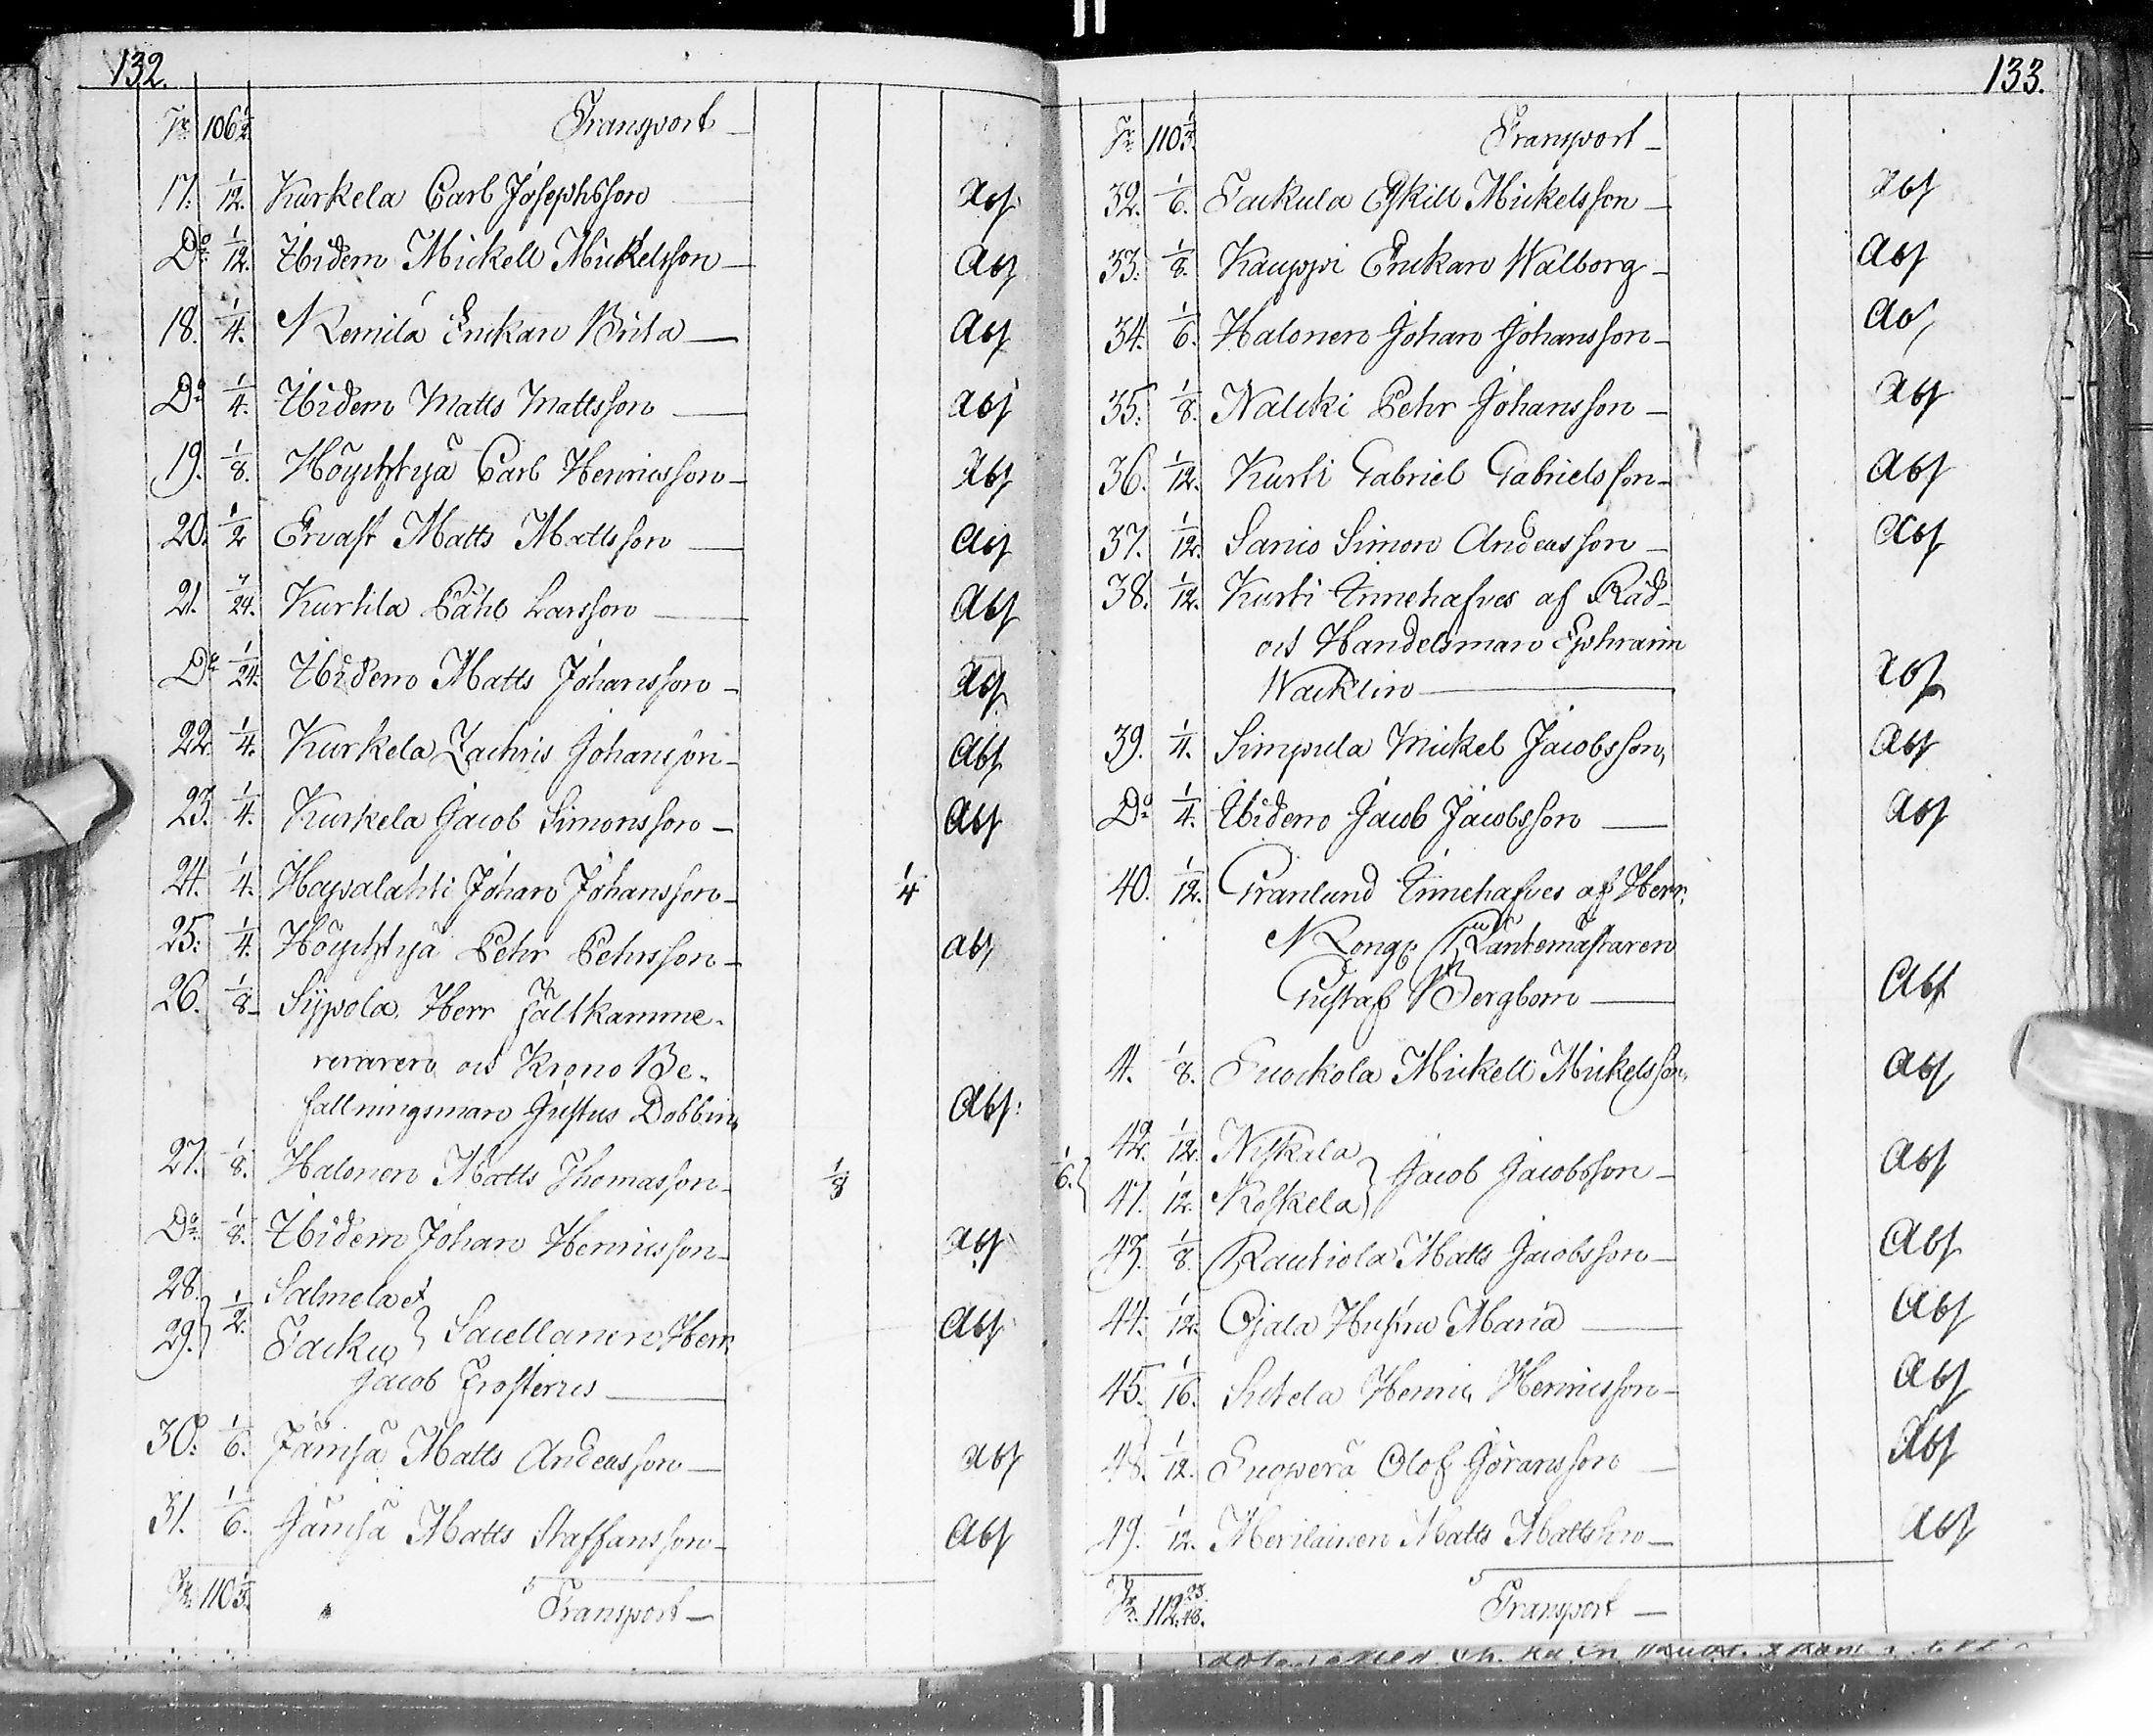 132.
Sr 106 1/2 Transport
17. 1/12. Kurkela Carl Josephsson Abs.
Do 1/12. Ibidem Mickell Mickelsson Abs
18. 1/4. NKemilä Enckan Brita Abs
Do 1/4. Ibidem Matts Mattsson Abs
19. 1/8. Höychtyä Carl Henricsson Abs
20. 1/2 Ervast Matts Mattsson Abs
21. /24. Kurtila Påhl Larsson Abs
Do 1/24. Ibidem Matts Johansson Abs
22. 1/4. Kurkela Zachris Johansson Abs
23. 1/4. Kurkela Jacob Simonsson Abs
24. 1/4. Hapsalahti Johan Johansson 1/4
25. 1/4. Höychtyä Pehr Pehrsson abs
26. 1/8 Sÿpola Herr Fältkamme-
reraren och Krono Be-
fallningsman Justus Dobbin Abs:
27. 1/8. Halonen Matts Thomasson 1/8
Do 1/8. Ibidem Johan Henricsson Abs
28. Salmela et
29. } 1/2. Tacku } Sacellanen Herr
Jacob Frosterus Abs
30. 1/6. Jämsä Matts Andersson Abs
31. 1/6. Jämsä Matts Staffansson Abs
Sr 110 1/3. Transport
133.
Sr 110 1/3. Transport
32. 1/6. Tackula Eskill Mickelsson Abs
33. 1/8. Kauppi Enckan Walborg Abs
34. 1/6. Halonen Johan Johansson Abs
35. 1/8. Nalcki Pehr Johansson Abs
36. 1/12. Kurti Gabriel Gabrielsson Abs
37. 1/12. Sanio Simon Andersson Abs
38. 1/12. Kurti Innehafves af Råd-
och Handelsman Ephraim
Wacklin Abs
39. 1/4. Simpula Mickel Jacobsson Abs
Do 1/4. Ibidem Jacob Jacobsson Abs
40. 1/12. Granlund Innehafves af Herr
Räntemästaren
Gustaf Bergbom Abs
41. 1/8. Tuockola Mickell Mickelsson Abs
42. 1/12. Niskala
1/6. { 47. 1/12. Koskela } Jacob Jacobsson Abs
43. 1/8. Rautiola Matts Jacobsson Abs
44. 1/12. Ojala Hustru Maria Abs
45. 1/16. Sutela Henric Henricsson Abs
48. 1/12. Tuoperä Olof Göransson Abs
49. 1/12. Meriläinen Matts Mattsson Abs
Sr 112 23/48. Transport